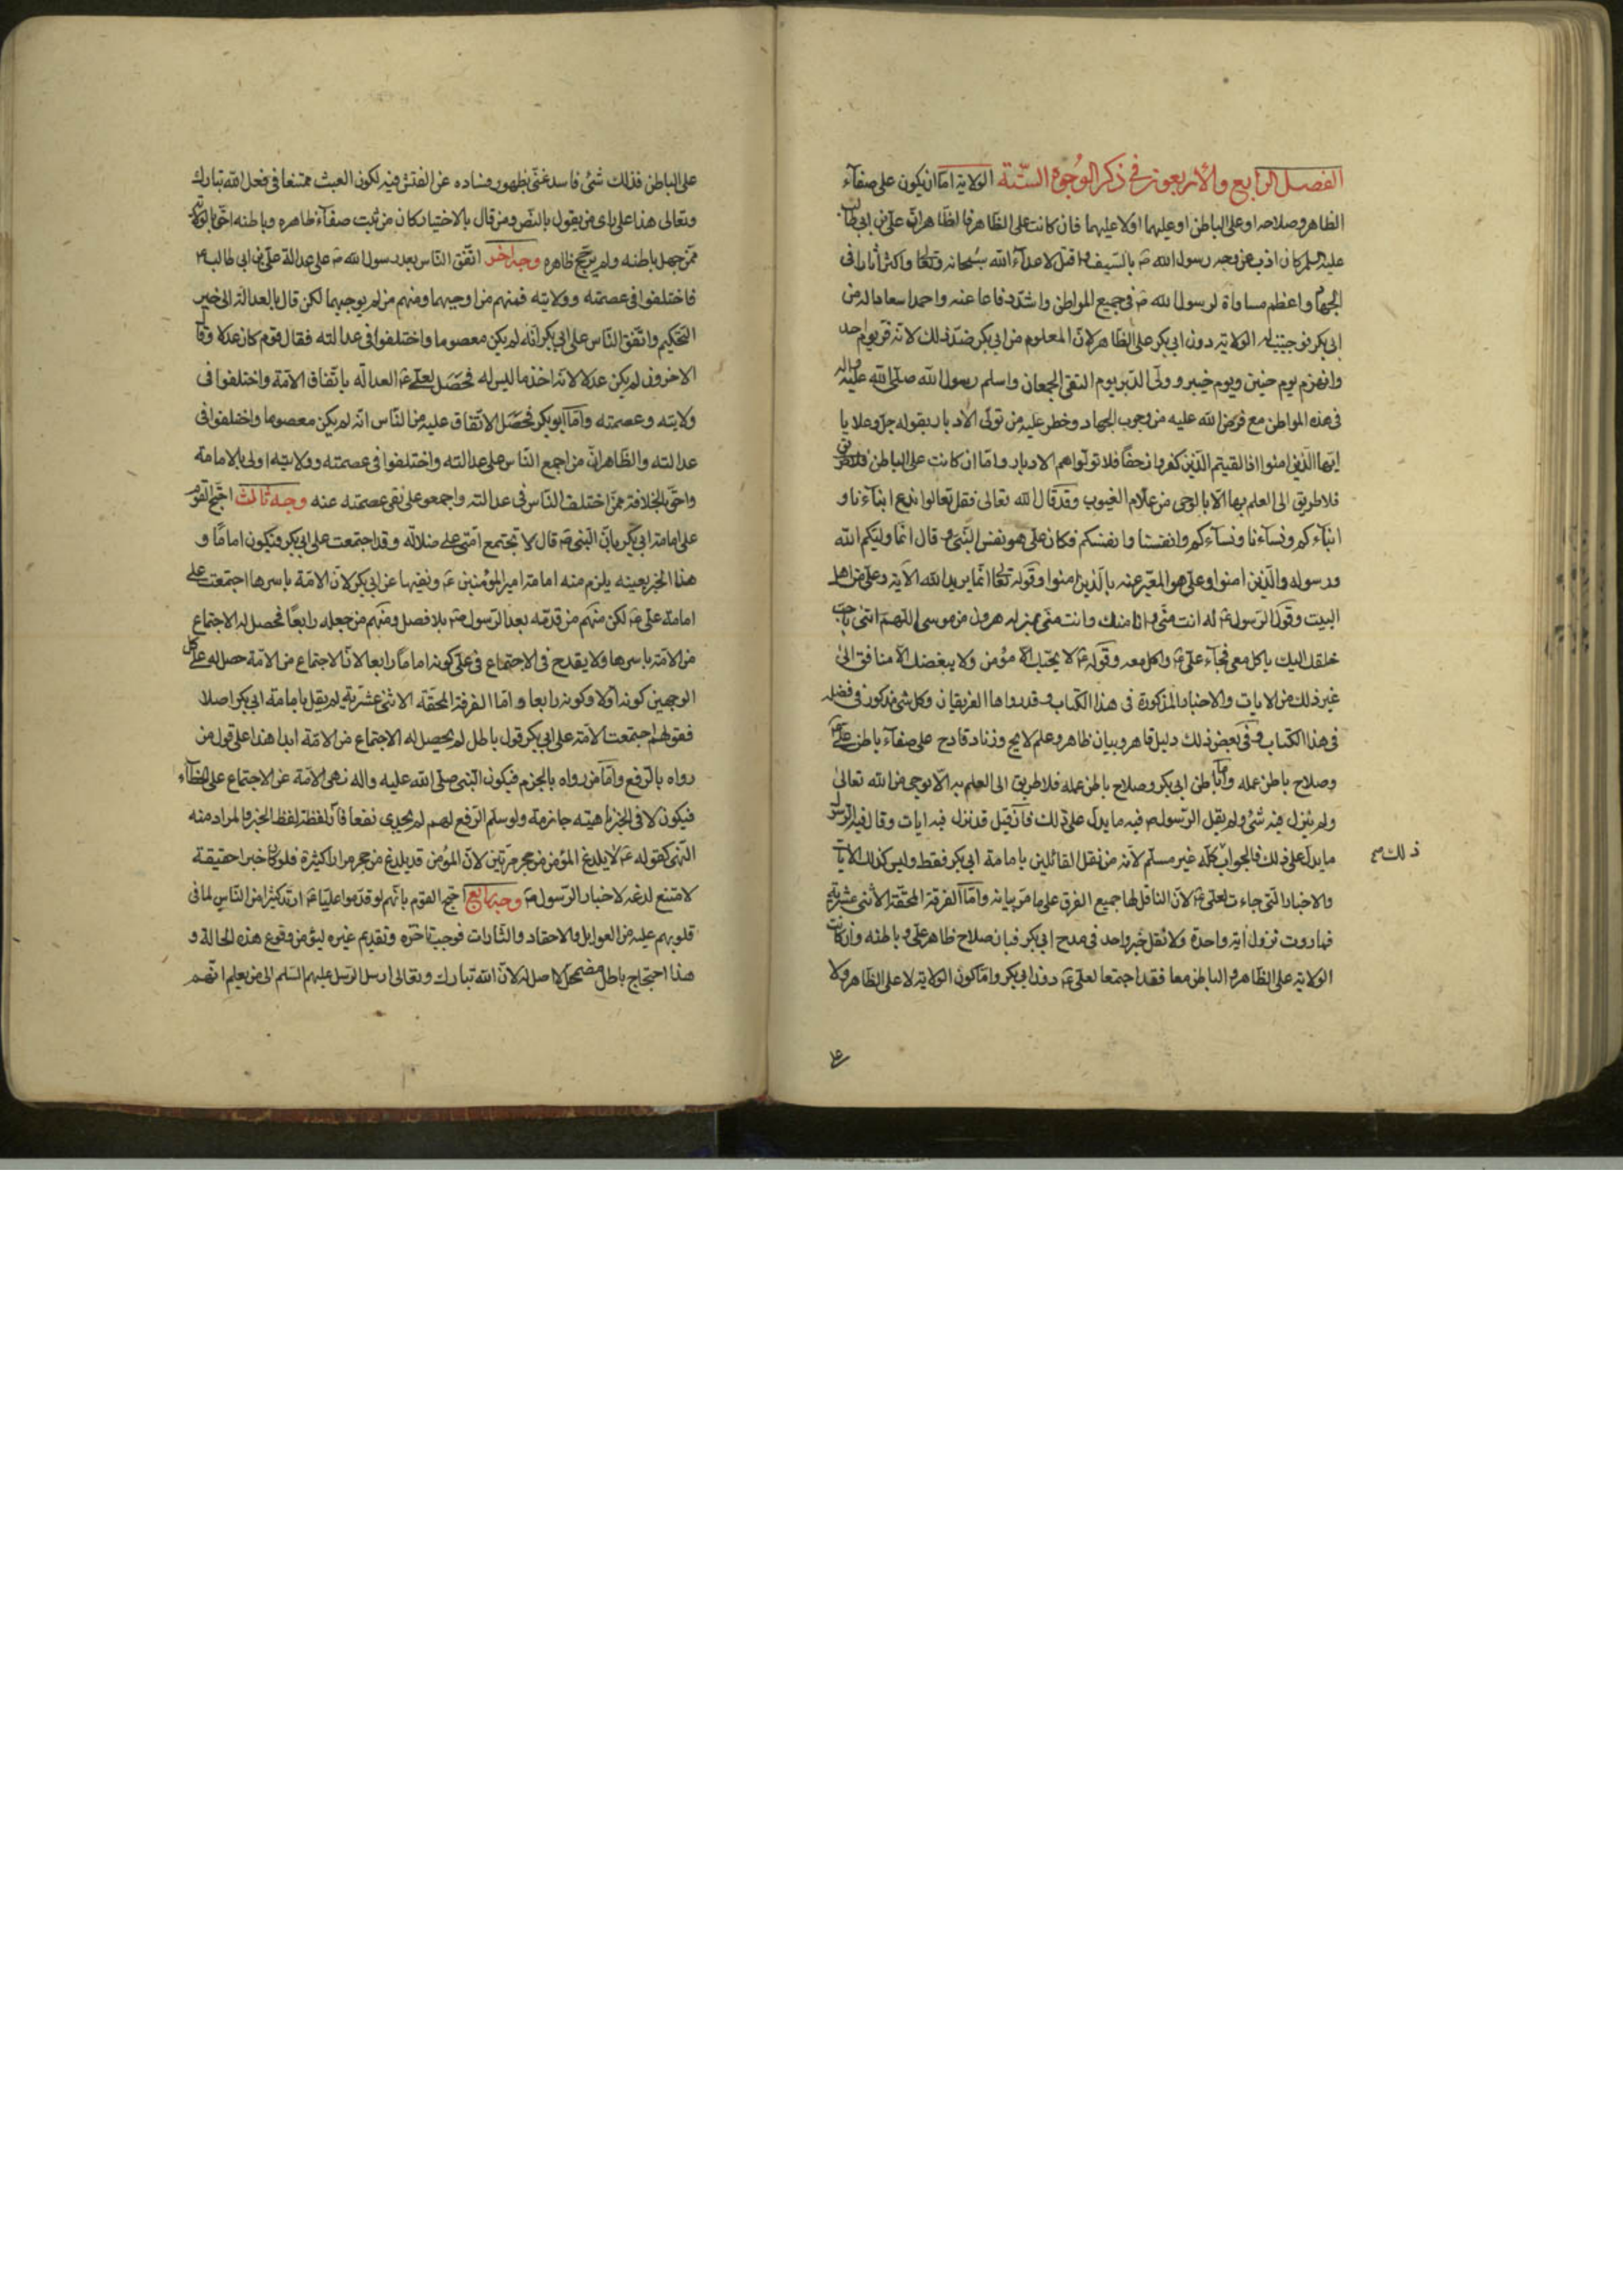 الفصل الرابع والأربعون في ذكر الوجوه الستة الولاية امّا ان يكون على صفآء
الظاهر وصلاحه او على الباطن او عليهما او لا عليهما فان كانت على الظاهر فالظاهر انّ علي بن ابي طالب
عليه السلم كان اذب عن وجه رسول الله ص بالسيف واقتل لاعدآء الله سبحانه وتعالى واكثر اثارا في
الجهاد واعظم مساواة لرسول الله ص في جميع المواطن واشد دفاعا عنه واحمد اسعادا له من
ابي بكر فوجبت له الولاية دون ابي بكر على الظاهر لانّ المعلوم من ابي بكر ضد ذلك لانه فر يوم احد
وانهزم يوم حنين ويوم خيبر وولّى الدبر يوم التقى الجمعان واسلم رسول الله صلى الله عليه واله
في هذه المواطن مع فرض الله عليه من وجوب الجهاد وخطر عليه من تولّى الادبار بقوله جل وعلا يا
ايّها الذين امنوا اذا لقيتم الذين كفروا زحفًا فلا تولّوهم الادبار وامّا ان كانت على الباطن
فلا طريق الى العلم بها الا بالوحى من علّام الغيوب وقد قال الله تعالى فقل تعالوا ندع ابنآءنا و
ابنآءكم ونسآءنا ونسآءكم وانفسنا وانفسكم فكان علي هو نفس النّبي وقال انّما وليّكم الله
ورسوله والّذين امنوا وعلي هو المعبّر عنه بالّذين امنوا وقوله تعالى انّما يريد الله الآية وعلي من اهل
البيت وقول الرسول ع له انت منّي وانا منك وانت منّي بمنزلة هرون من موسى اللّهم ائتني باحب
خلقك اليك ياكل معي فجآء علي ع واكل معه وقوله ع لا يحبّك الّا مؤمن ولا يبغضك الّا منافق الى
غير ذلك من الايات والاخبار المذكورة في هذا الكتاب وقد رواها الفريقان وكل شئ مذكور في فضله
في هذا الكتاب وفي بعض ذلك دليل قاهر وبيان ظاهر وعلم لايح وزناد قادح على صفآء باطن علي ع
وصلاح باطن عمله وامّا باطن ابي بكر وصلاح باطن عمله فلا طريق الى العلم به الّا بوحي من الله تعالى
ولم ينزل فيه شئ ولم يقل الرّسول ص فيه ما يدلّ على ذلك فان قيل قد نزل فيه ايات وقال فيه الرسول
ما يدلّ على ذلك فالجواب كلّه غير مسلّم لانه من نقل القائلين بامامة ابي بكر فقط وليس كذلك الايات
ذلك صح
والاخبار التي جاءت لعلي ع لانّ الناقل لها جميع الفرق على ما مرّ بيانه وامّا الفرقة المحقّة الاثنى عشرية
فما روت نزول اية واحدة ولا نقل خبر واحد في مدح ابي بكر فبان صلاح ظاهر علي وباطنه وان كانت
الولاية على الظاهر والباطن معا فقد اجتمعا لعلي ع دون ابي بكر وامّا كون الولاية لا على الظاهر ولا
على الباطن فذلك شئ فاسد غنّي بظهور فساده عن الفتش فيه لكون العبث ممتنعا في فعل الله تبارك
وتعالى هذا على راى من يقول بالنّص ومن قال بالاختيار كان من ثبت صفآء ظاهره وباطنه احقّ بالولاية
ممّن جهل باطنه ولم يرجّح ظاهره وجه اخر اتّفق النّاس بعد رسول الله ص على عدالة علي بن ابي طالب ع
فاختلفوا في عصمته وولايته فمنهم من اوجبهما ومنهم من لم يوجبهما لكن قال بالعدالة الى حين
التحكيم واتّفق النّاس على ابي بكر انّه لم يكن معصوما واختلفوا في عدالته فقال قوم كان عدلا وقال
الاخرون لم يكن عدلا لانه اخذ ما ليس له فحصل لعلي ع العدالة باتّفاق الامّة واختلفوا في
ولايته وعصمته وامّا ابو بكر فحصل الاتّفاق عليه من النّاس انّه لم يكن معصوما واختلفوا في
عدالته والظاهر انّ من اجمع النّاس على عدالته واختلفوا في عصمته وولايته اولى بالامامة
واحقّ بالخلافة ممّن اختلف النّاس في عدالته واجمعو على نفي عصمته عنه وجه ثالث احتجّ القوم
على امامة ابي بكر بانّ النّبي ص قال لا تجتمع امّتي على ضلالة وقد اجتمعت على ابي بكر فيكون امامًا و
هذا الخبر بعينه يلزم منه امامة امير المؤمنين ع ونفيها عن ابي بكر لانّ الامّة باسرها اجتمعت على
امامة علي ع لكن منهم من قدّمه بعد الرسول ص بلا فصل ومنهم من جعله رابعًا فحصل له الاجتماع
من الامّة باسرها ولا يقدح في الاجتماع في علي كونه امامًا رابعا لانّ الاجتماع من الامّة حصل له على كل
الوجهين كونه اولا وكونه رابعا وامّا الفرقة المحقّة الاثنى عشرية لم يقل بامامة ابي بكر اصلا
فقولهم اجتمعت الامّة على ابي بكر قول باطل لم يحصل له الاجتماع من الامّة ابدا هذا على قول من
رواه بالرّفع وامّا من رواه بالجزم فيكون النّبي صلى الله عليه واله نهى الامّة عن الاجتماع على الخطاء
فيكون لا في الخبر ناهية جازمة ولو سلّم الرّفع لهم لم يجدي نفعا فانّ لفظه لفظ الخبر والمراد منه
النّهي كقوله ع لا يلدغ المؤمن من جحر مرّتين لانّ المؤمن قد يلدغ من جحر مرارا كثيرة فلو كان خبرا حقيقة
لامتنع لدغه لاخبار الرّسول ص وجه رابع احتج القوم بانّهم لو قدّموا عليّا ع ارتدّ كثيرا من النّاس لما في
قلوبهم عليه من الغوايل والاحقاد والثارات فوجب تاخّره وتقديم غيره ليؤمن وقوع هذه الحالة و
هذا احتجاج باطل مضمحل لا اصل له لانّ الله تبارك وتعالى ارسل الرسل عليهم السّلم الى من يعلم انّهم